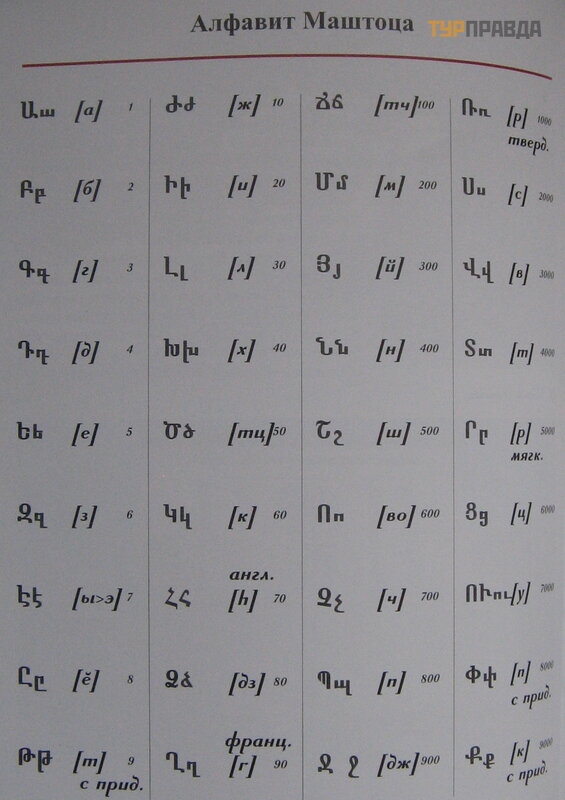 Алфавит Маштоца
ТУРПРАВДА
Աա [а] 1
Բբ [б] 2
Գգ [г] 3
Դդ [д] 4
Եե [е] 5
Զզ [з] 6
Էէ [ы>э] 7
Ըը [ĕ] 8
Թթ [т] 9
с прид.
Ժժ [ж] 10
Իի [и] 20
Լլ [л] 30
Խխ [х] 40
Ծծ [тц] 50
Կկ [к] 60
англ.
Հհ [h] 70
Ձձ [дз] 80
франц.
Ղղ [г] 90
Ճճ [тч] 100
Մմ [м] 200
Յյ [й] 300
Նն [н] 400
Շշ [ш] 500
Ոո [во] 600
Չչ [ч] 700
Պպ [п] 800
Ջ ջ [дж] 900
Ռռ [р] 1000
тверд.
Սս [с] 2000
Վվ [в] 3000
Տտ [т] 4000
Րր [р] 5000
мягк.
Ցց [ц] 6000
ՈՒու [у] 7000
Փփ [п] 8000
с прид.
Քք [к] 9000
с прид.